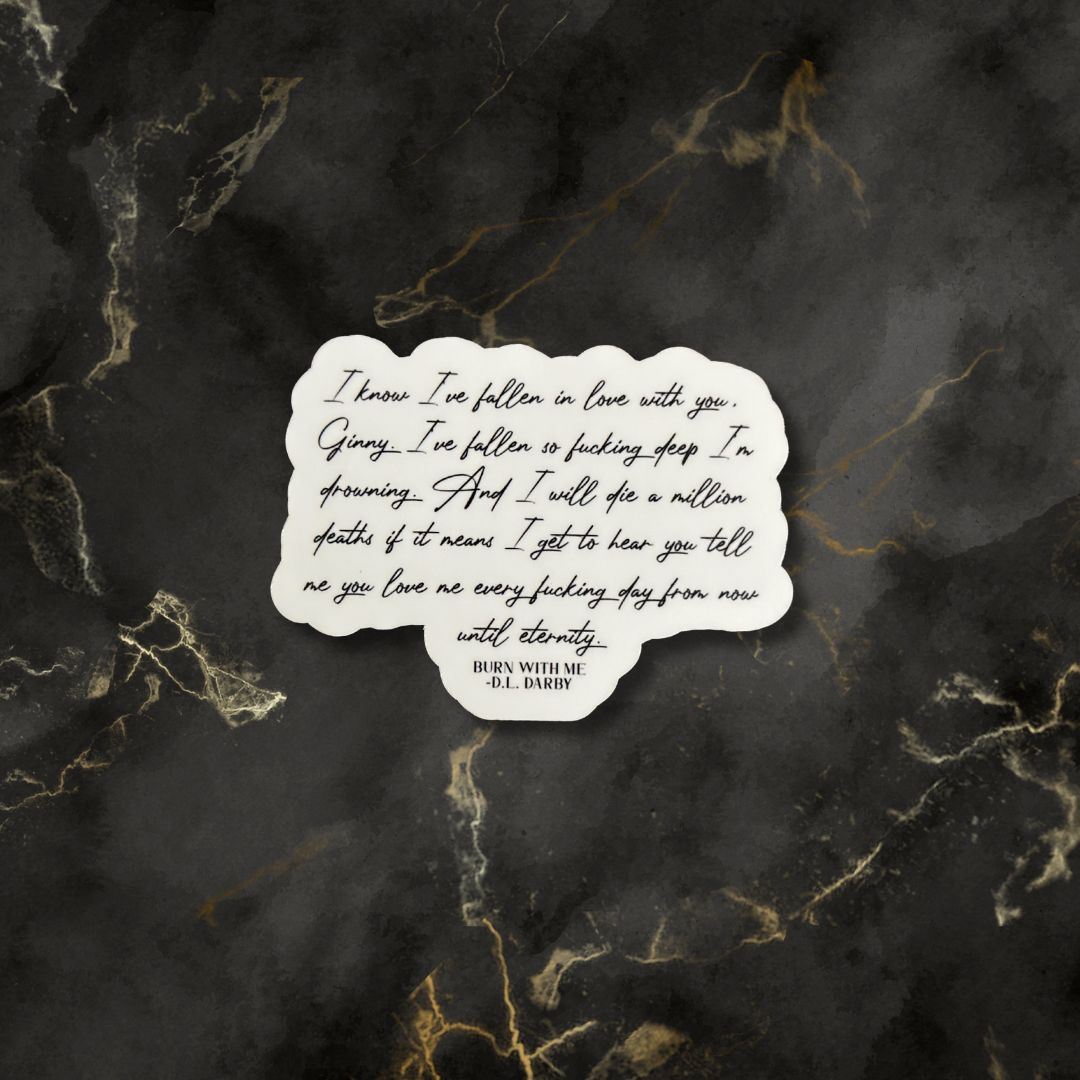 I know I've fallen in love with you,
Ginny. I've fallen so fucking deep I'm
drowning. And I will die a million
deaths if it means I get to hear you tell
me you love me every fucking day from now
until eternity.
BURN WITH ME
-D.L. DARBY